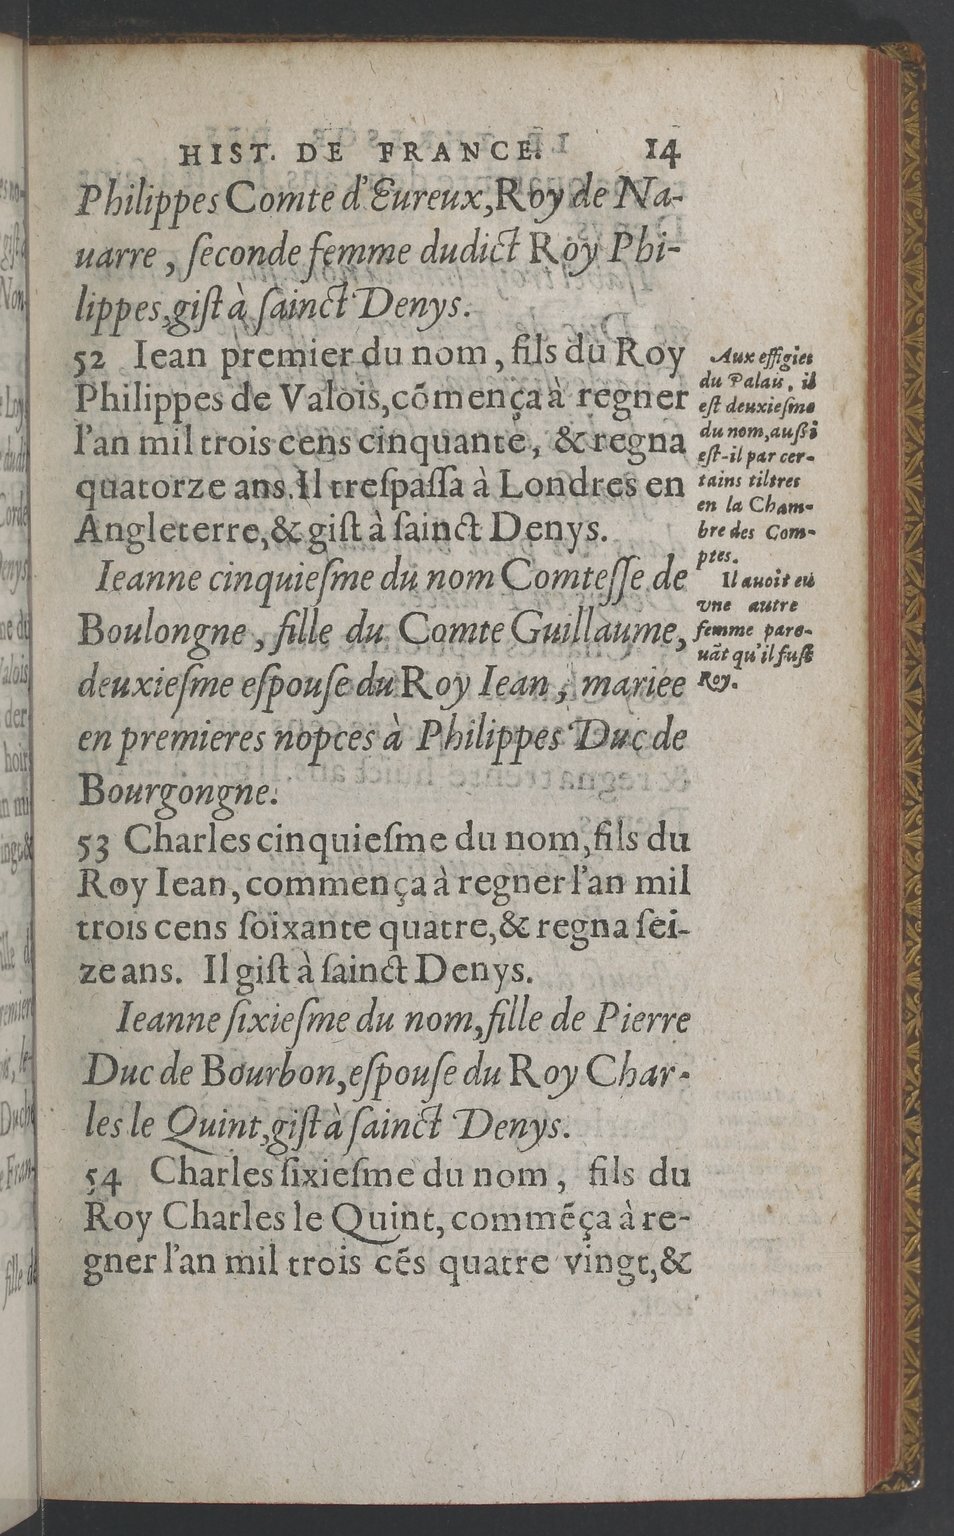 HIST. DE FRANCE. 14
Philippes Comte d'Eureux, Roy de Na-
uarre, ſeconde femme dudict Roy Phi-
lippes, giſt à ſainct Denys.
52 Iean premier du nom, fils du Roy
Philippes de Valois, cõmença à regner
l'an mil trois cens cinquante, & regna
quatorze ans. Il treſpaſſa à Londres en
Angleterre, & giſt à ſainct Denys.
Ieanne cinquieſme du nom Comteſſe de
Boulongne, fille du Comte Guillaume,
deuxieſme eſpouſe du Roy Iean, mariee
en premieres nopces à Philippes Duc de
Bourgongne.
53 Charles cinquieſme du nom, fils du
Roy Iean, commença à regner l'an mil
trois cens ſoixante quatre, & regna ſei-
ze ans. Il giſt à ſainct Denys.
Ieanne ſixieſme du nom, fille de Pierre
Duc de Bourbon, eſpouſe du Roy Char-
les le Quint, giſt à ſainct Denys.
54 Charles ſixieſme du nom, fils du
Roy Charles le Quint, commẽça à re-
gner l'an mil trois cẽs quatre vingt, &
Aux effigies
du Palais, il
eſt deuxieſme
du nom, auſsi
eſt-il par cer-
tains tiltres
en la Cham-
bre des Com-
ptes.
Il auoit eu
vne autre
femme parа-
uãt qu'il fuſt
Roy.